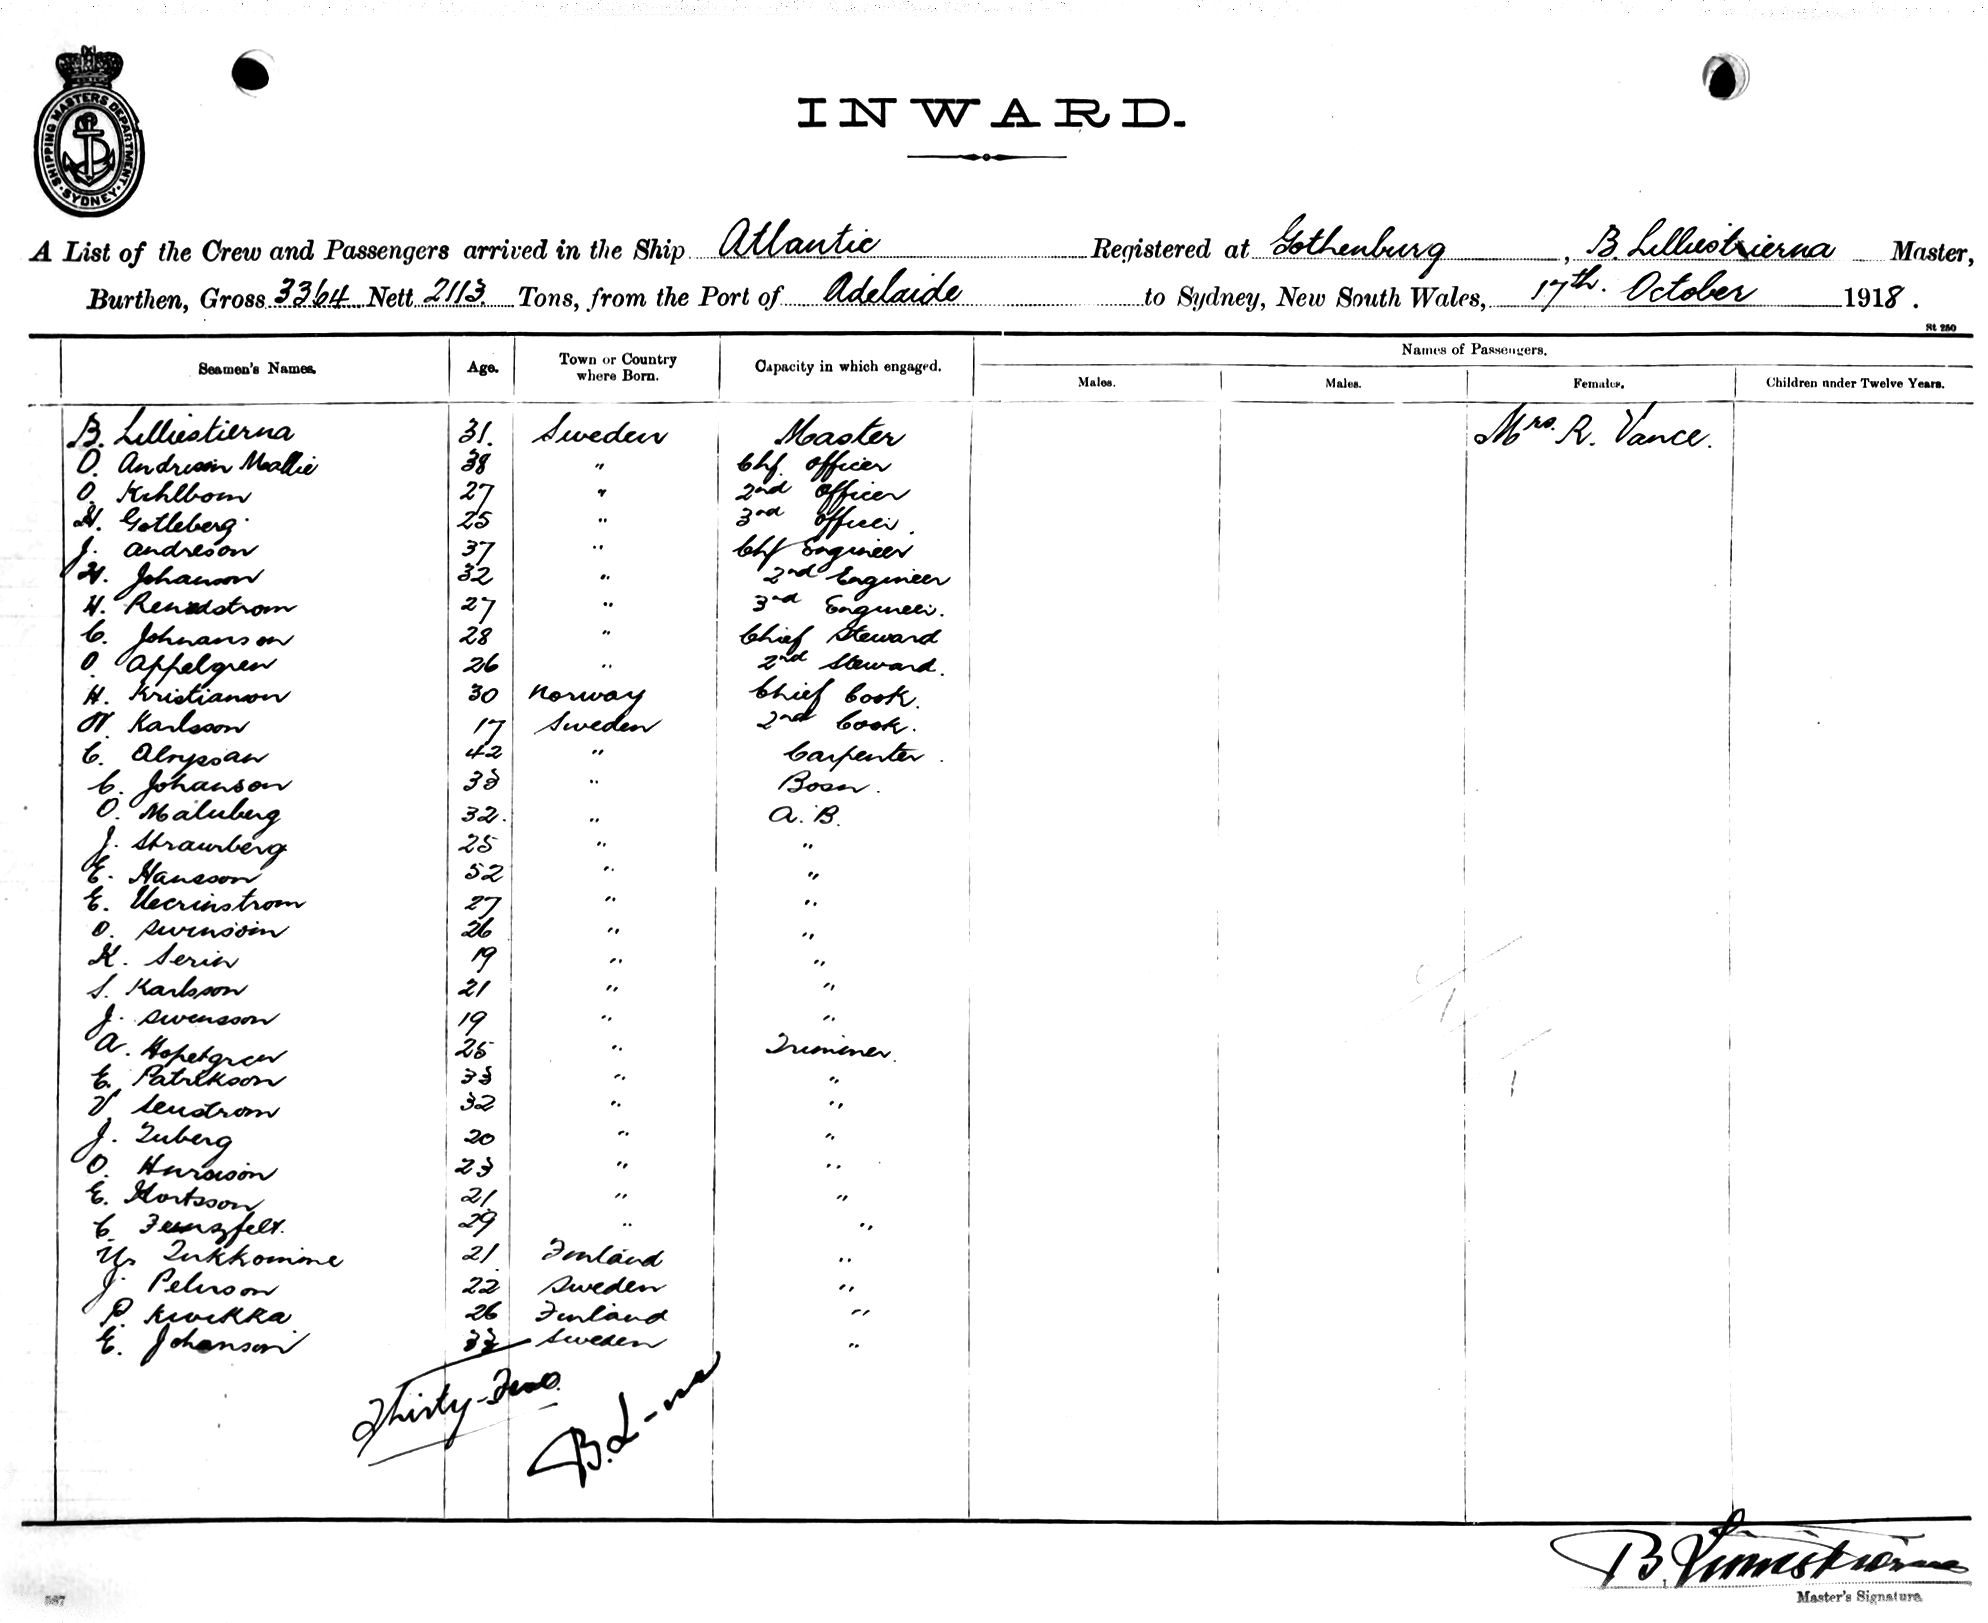 SHIPPING MASTERS DEPARTMENT · SYDNEY ·
INWARD.
A List of the Crew and Passengers arrived in the Ship Atlantic Registered at Gothenburg, B. Lilliestierna Master,
Burthen, Gross 3364 Nett 2113 Tons, from the Port of Adelaide to Sydney, New South Wales, 17th. October 1918.
St 250
Seamen's Names. Age. Town or Country where Born. Capacity in which engaged. Names of Passengers.
Males. Males. Females. Children under Twelve Years.
B. Lilliestierna 31. Sweden Master Mrs. R. Vance.
O. Andreson Mallie 38 " Chf. Officer
O. Kihlbom 27 " 2nd Officer
H. Gotleberg 25 " 3rd Officer
J. Andreson 37 " Chf Engineer
H. Johanson 32 " 2nd Engineer
H. Renstrom 27 " 3rd Engineer.
C. Johnanson 28 " Chief Steward
O. Appelgren 26 " 2nd Steward.
H. Kristianson 30 Norway Chief Cook.
N. Karlsson 17 Sweden 2nd Cook.
C. 42 " Carpenter.
C. Johanson 33 " Bosn.
O. Malmberg 32. " A.B.
J. Straumberg 25 " "
E. Hansson 52 " "
E. 27 " "
O. Swenson 26 " "
K. Serin 19 " "
S. Karlsson 21 " "
J. Swensson 19 " "
A. 25 " Trimmer.
E. Patrikson 33 " "
V. 32 " "
J. 20 " "
O. 23 " "
E. 21 " "
C. 29 " "
21 Finland "
J. Peterson 22 Sweden "
P. 26 Finland "
E. Johanson 33 Sweden "
Thirty-Two.
B. L-na
B. Lilliestierna
Master's Signature.
587